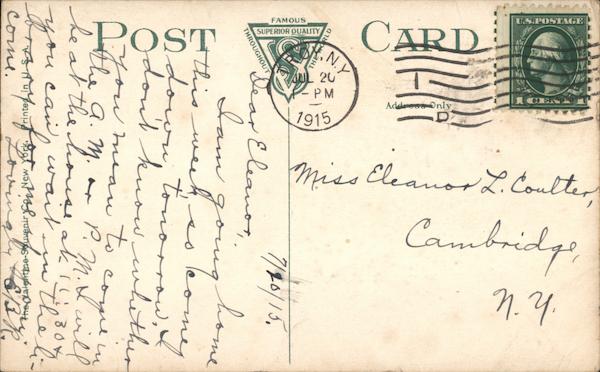 POST CARD
FAMOUS
SUPERIOR QUALITY
THROUGHOUT THE WORLD
TROY, N.Y.
JUL 20
1-PM
1915
1
D
U.S. POSTAGE
1 CENT 1
Address Only
Miss Eleanor L. Coulter,
Cambridge,
N.Y.
7/20/15.
Dear Eleanor,
I am going home
this week so come
down tomorrow. I
don't know whether
you mean to come in
the A.M. or P.M. I will
be at the house at 11:30 &
you can wait in the li-
for me if I don't
come.
Lovingly
The Valentine-Souvenir Co., New York. Printed in U.S.A.